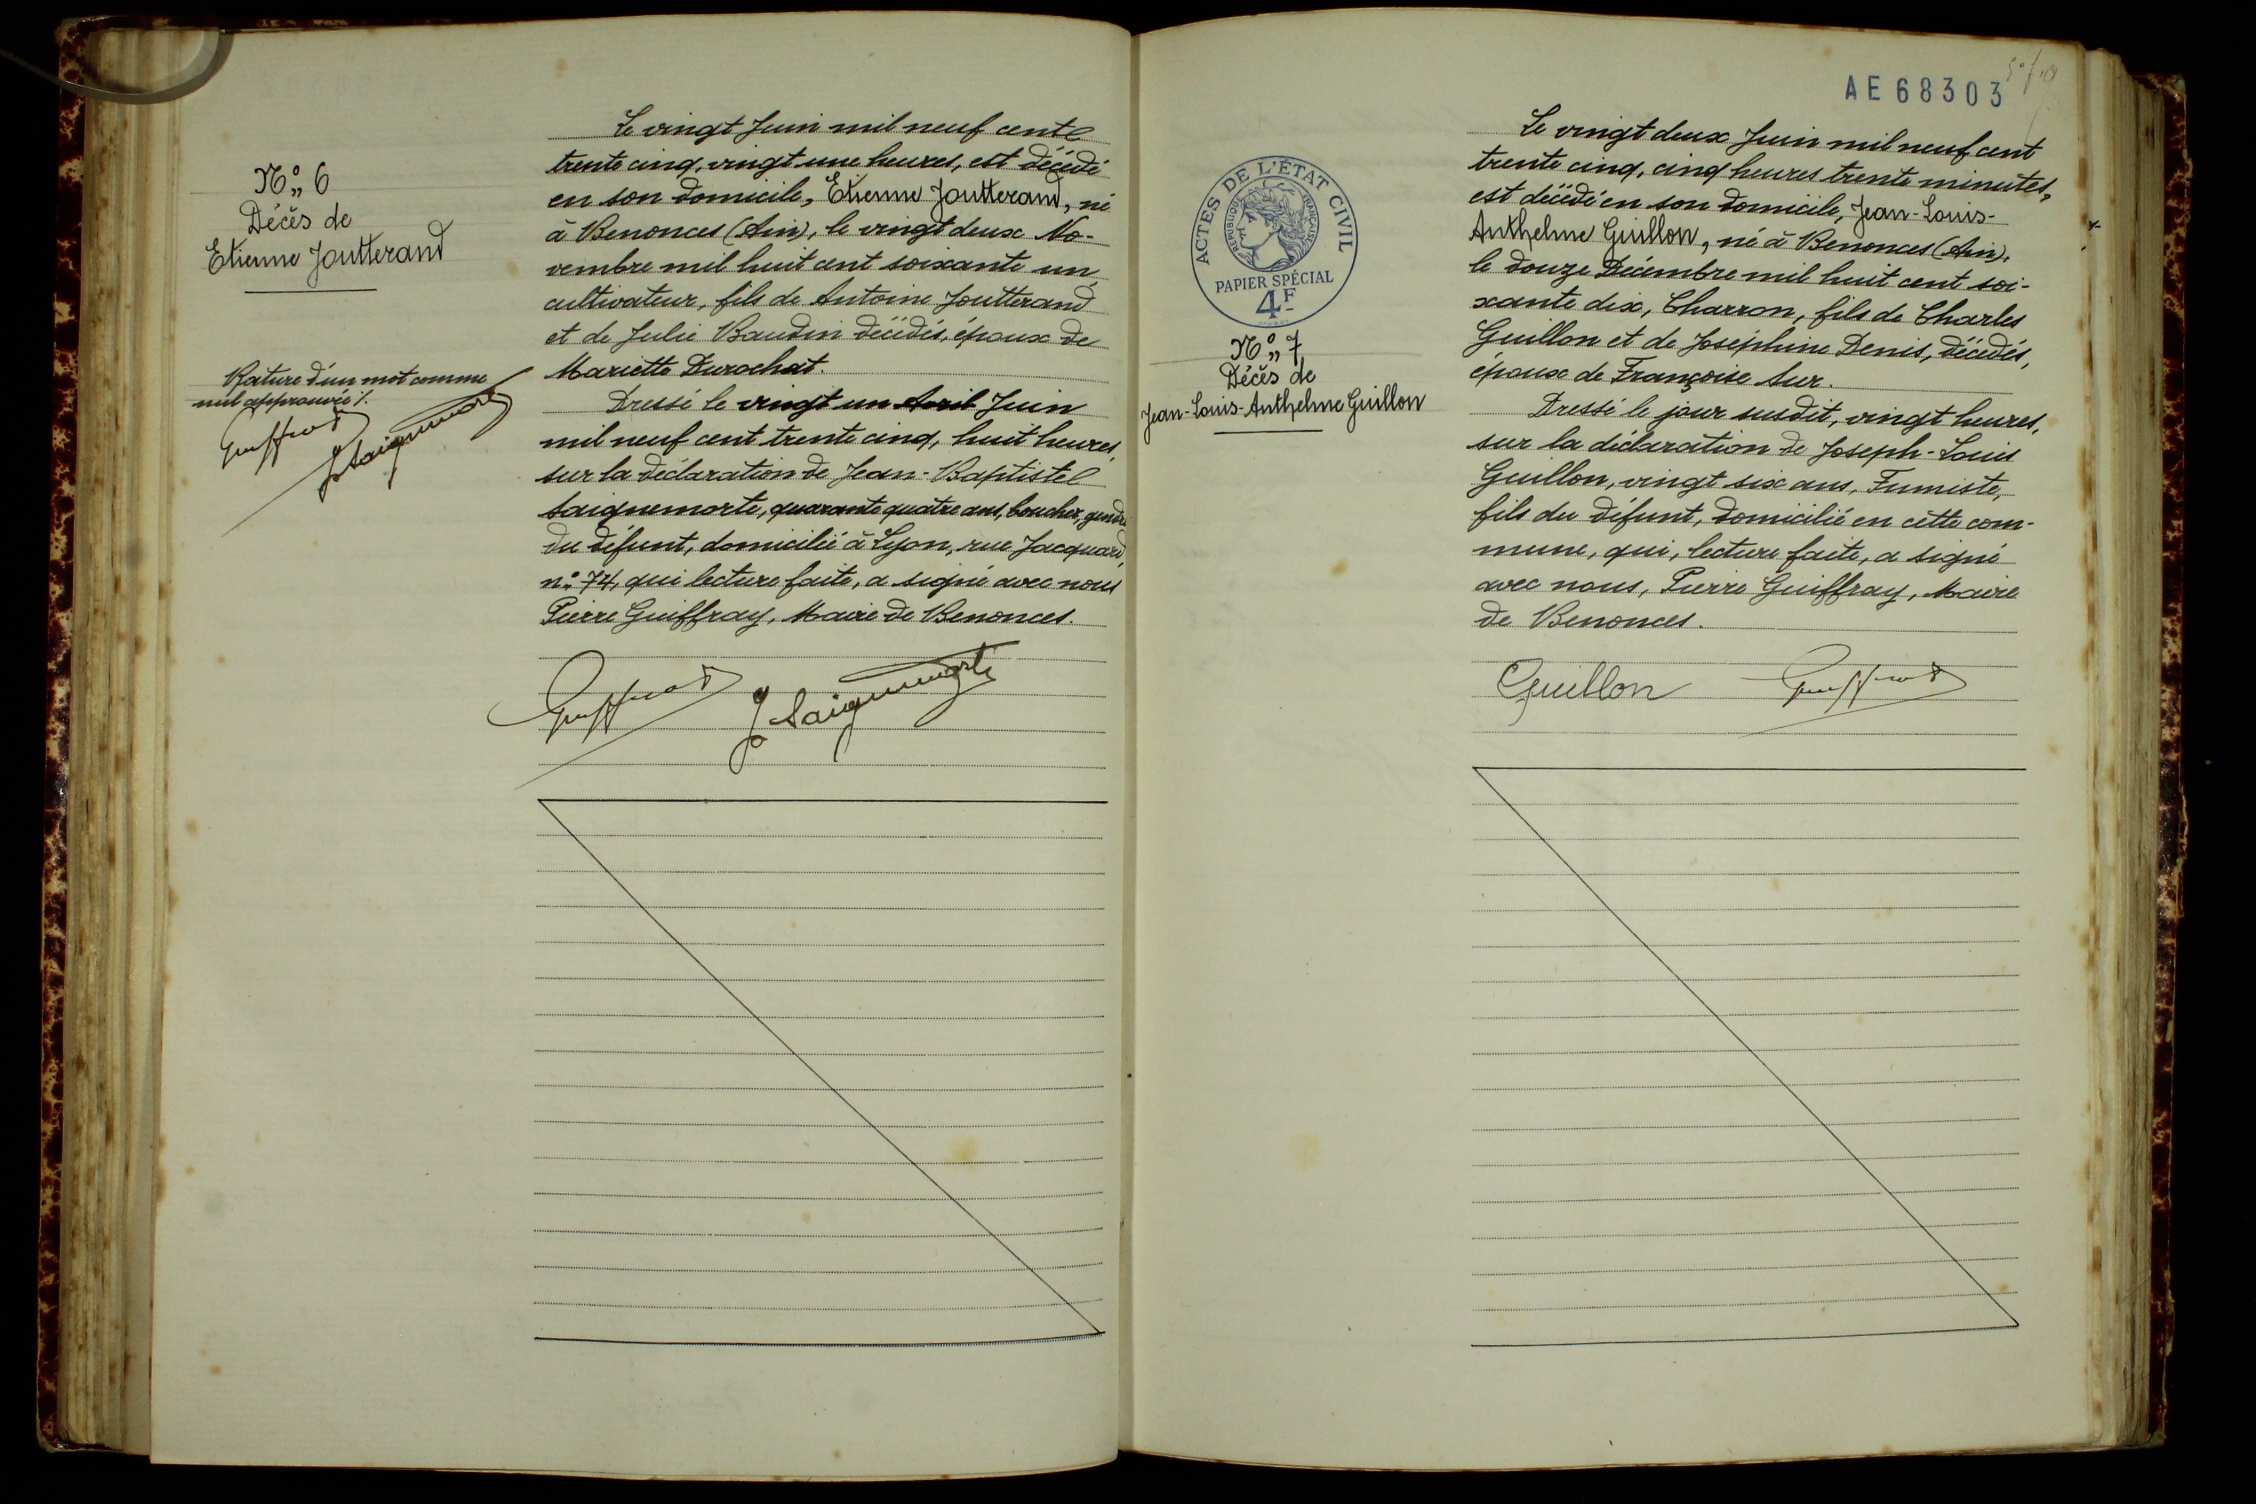 N° 6
Décès de
Etienne Joutterand
Rature d'un mot comme
nul approuvée /.
Le vingt Juin mil neuf cent
trente cinq, vingt une heures, est décédé
en son domicile, Etienne Joutterand, né
à Benonces (Ain), le vingt deux No-
vembre mil huit cent soixante un,
cultivateur, fils de Antoine Joutterand
et de Julie Baudin décédés, époux de
Mariette Durochat.
Dressé le vingt un Avril Juin
mil neuf cent trente cinq, huit heures,
sur la déclaration de Jean-Baptiste
Saignemorte, quarante quatre ans, boucher, gendre
du défunt, domicilié à Lyon, rue Jacquard,
n° 74, qui lecture faite, a signé avec nous
Pierre Guiffray, Maire de Benonces.
Guiffray
J Saignemorte
AE 68303
ACTES DE L'ÉTAT CIVIL
RÉPUBLIQUE FRANÇAISE
PAPIER SPÉCIAL
4F
N° 7
Décès de
Jean-Louis-Anthelme Guillon
Le vingt deux Juin mil neuf cent
trente cinq, cinq heures trente minutes,
est décédé en son domicile, Jean-Louis-
Anthelme Guillon, né à Benonces (Ain),
le douze Décembre mil huit cent soi-
xante dix, Charron, fils de Charles
Guillon et de Joséphine Denis, décédés,
époux de Françoise Sur.
Dressé le jour susdit, vingt heures,
sur la déclaration de Joseph-Louis
Guillon, vingt six ans, Fumiste,
fils du défunt, domicilié en cette com-
mune, qui, lecture faite, a signé
avec nous, Pierre Guiffray, Maire
de Benonces.
Guillon
Guiffray